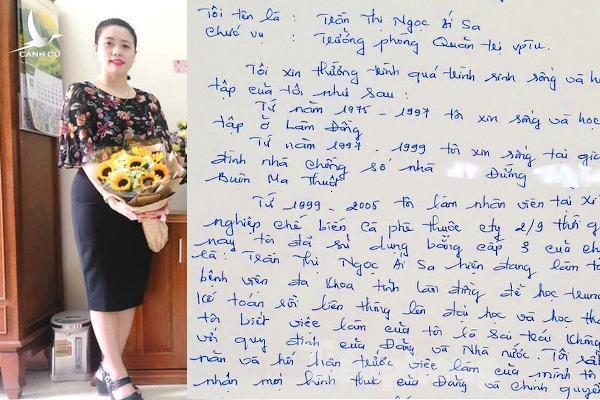 CÁNH CÒ
Tôi tên là : Trần Thị Ngọc Ái Sa
Chức vụ : Trưởng phòng Quản trị VPTU.
Tôi xin tường trình quá trình sinh sống và học
tập của tôi như sau :
Từ năm 1975 - 1997 tôi xin sống và học
tập ở Lâm Đồng
Từ năm 1997 - 1999 tôi xin sống tại gia
đình nhà chồng số nhà Đường
Buôn Ma Thuột
Từ 1999 - 2005 tôi làm nhân viên tại xí
nghiệp chế biến cà phê thuộc cty 2/9 thời g
này tôi đã sử dụng bằng cấp 3 của ch
là : Trần Thị Ngọc Ái Sa hiện đang làm tạ
bệnh viện đa khoa tỉnh Lâm Đồng để học trung
kế toán rồi liên thông lên đại học và học th
tôi biết việc làm của tôi là sai trái không
với quy định của Đảng và Nhà nước. Tôi rất
năn và hối hận trước việc làm của mình tôi
nhận mọi hình thức của Đảng và chính quyền